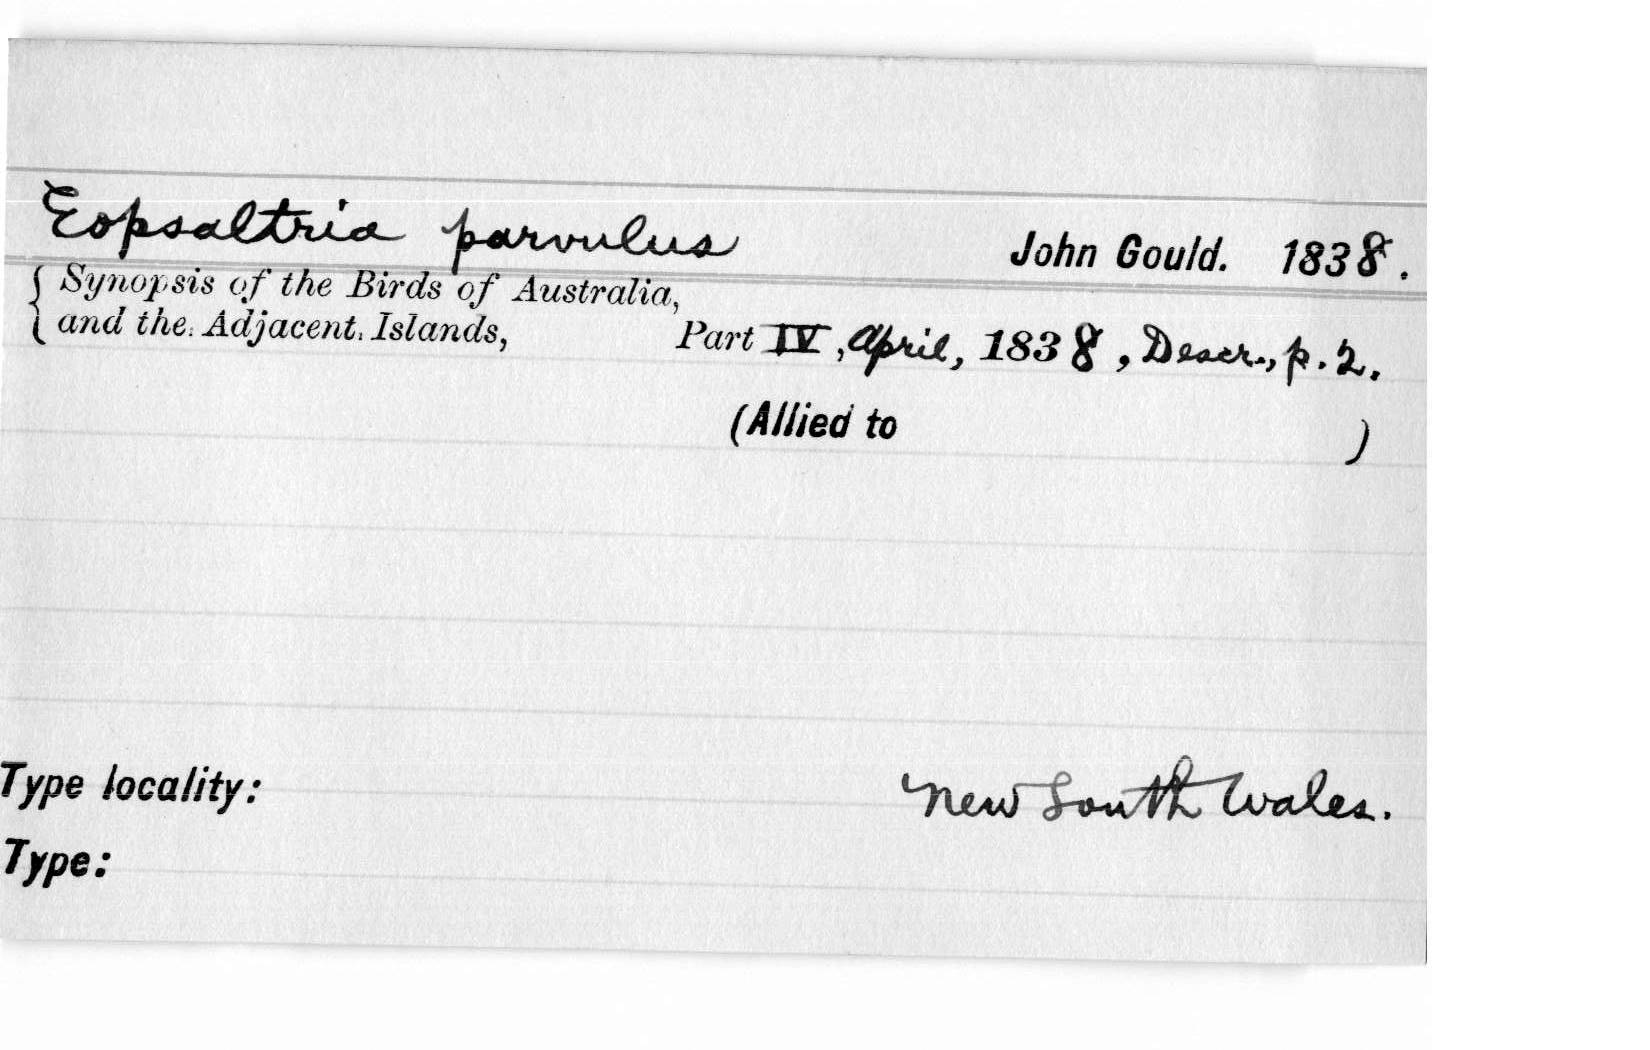 Eopsaltria parvulus John Gould. 1838.
Synopsis of the Birds of Australia,
and the Adjacent Islands, Part IV, April, 1838, Descr., p. 2.
(Allied to )
Type locality: New South Wales.
Type: